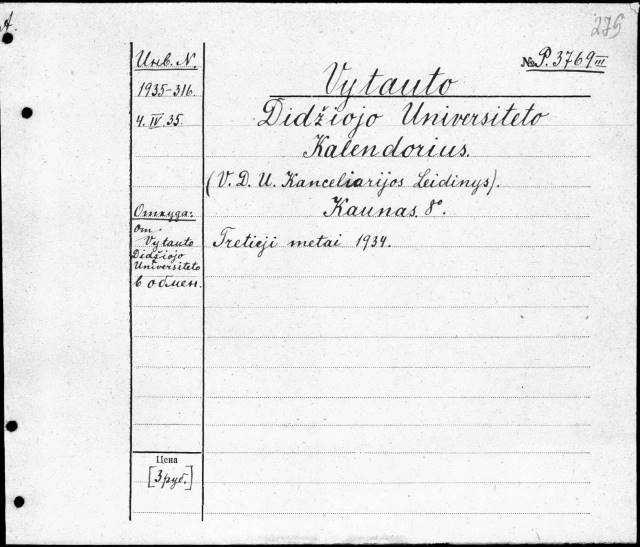 А.
275
№ P. 3769 III
Инв. N.
1935-316.
4. IV. 35.
Vytauto
Didžiojo Universiteto
Kalendorius.
(V. D. U. Kanceliarijos Leidinys).
Kaunas. 8°.
Откуда:
от
Vytauto
Didžiojo
Universiteto
в обмен.
Tretieji metai 1934.
Цена
[3 руб.]